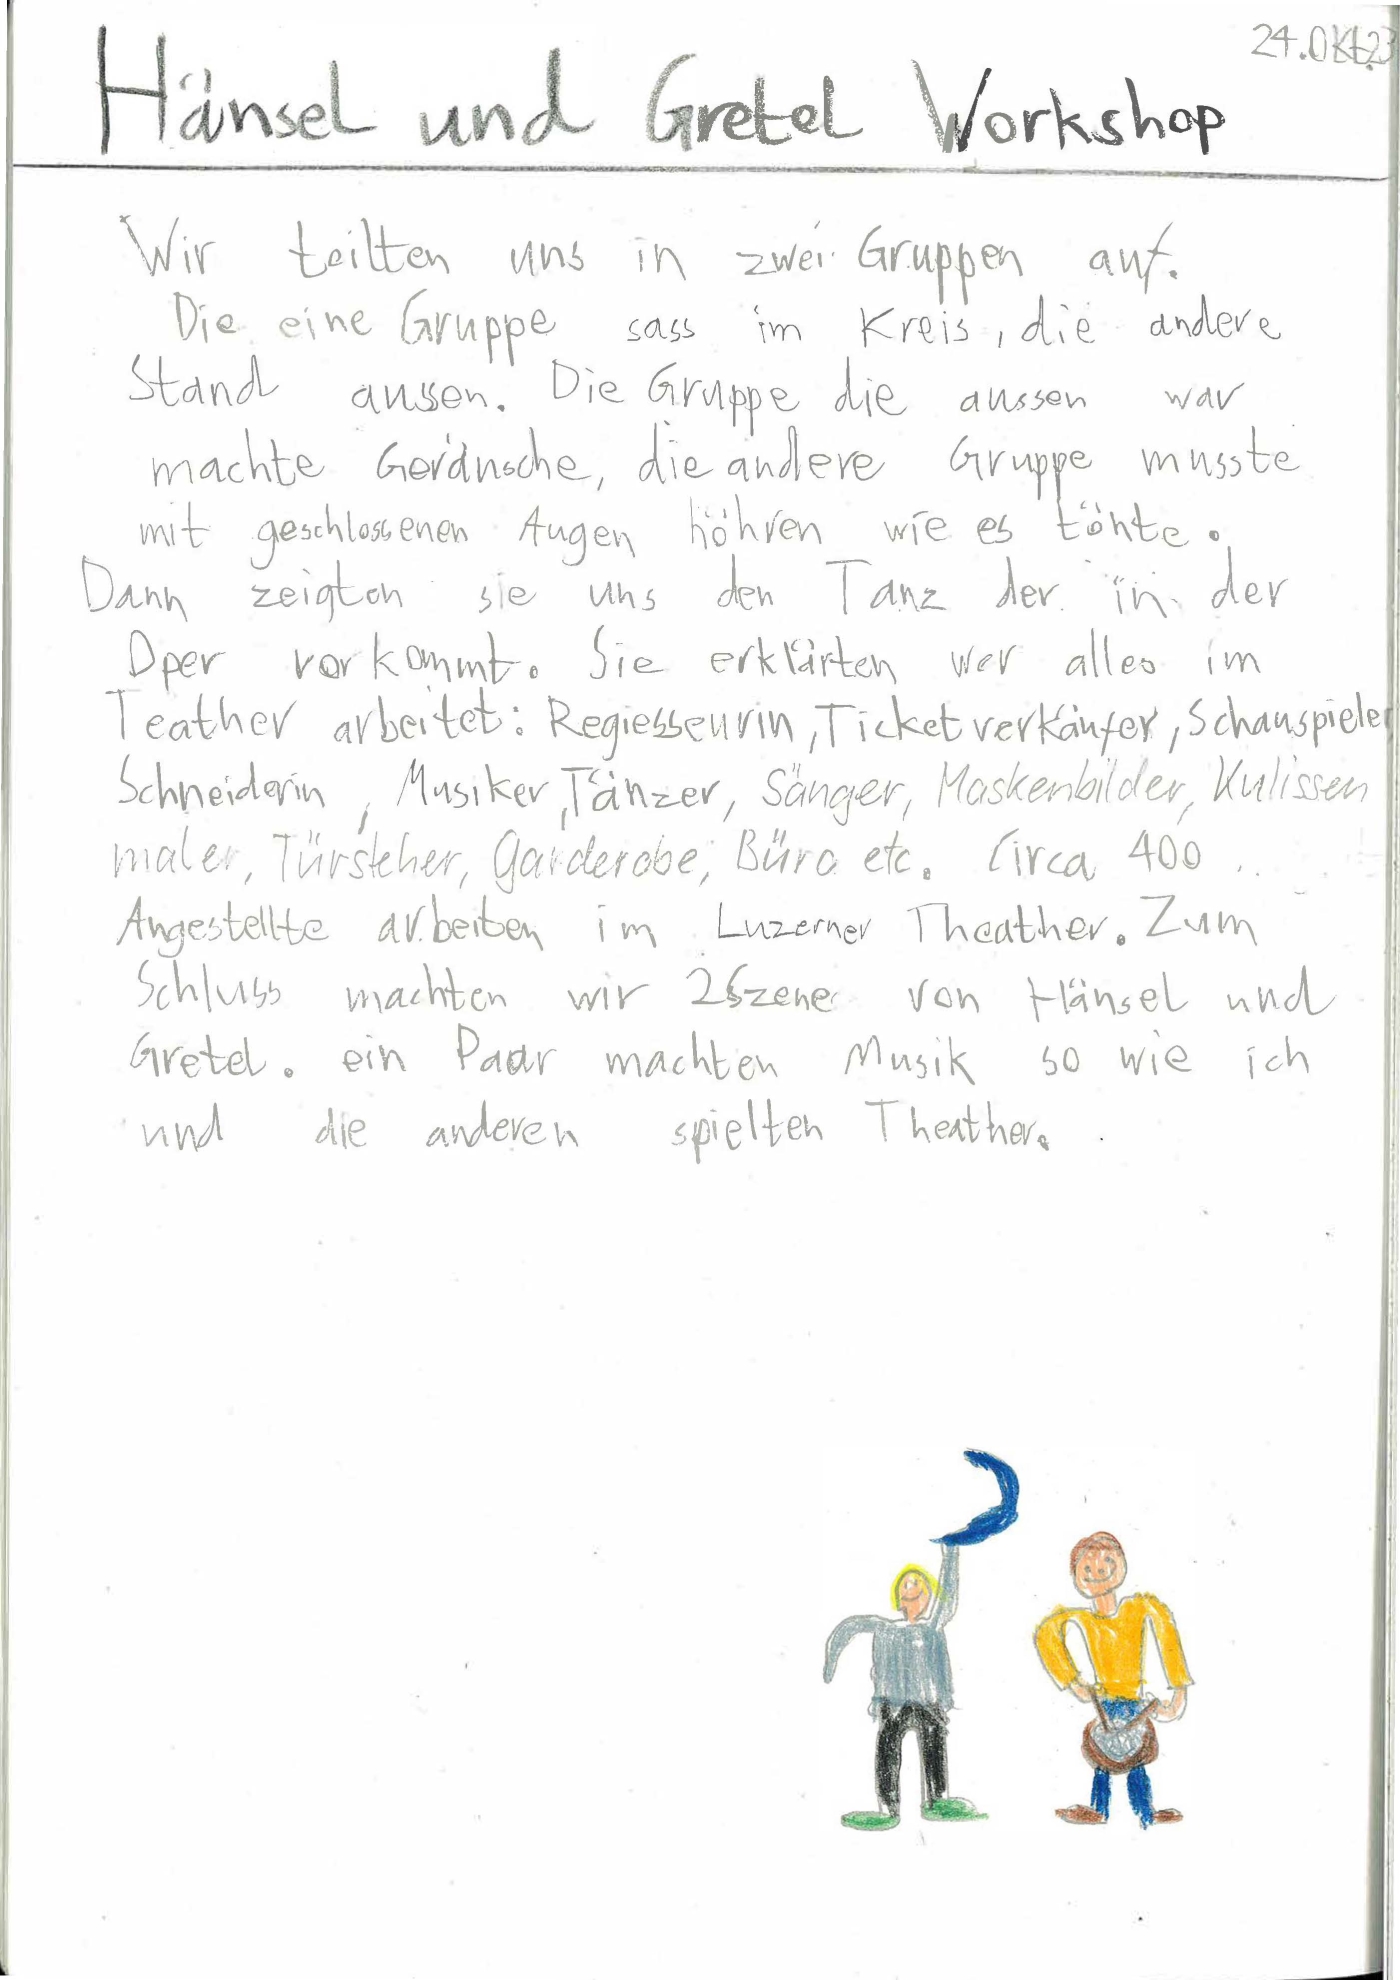 24.Okt.23
Hänsel und Gretel Workshop
Wir teilten uns in zwei Gruppen auf.
Die eine Gruppe sass im Kreis, die andere
Stand aussen. Die Gruppe die aussen war
machte Geräusche, die andere Gruppe musste
mit geschlossenen Augen höhren wie es töhte.
Dann zeigten sie uns den Tanz der in der
Oper vorkommt. Sie erklärten wer alles im
Teather arbeitet: Regiesseurin, Ticketverkäufer, Schauspieler
Schneiderin, Musiker, Tänzer, Sänger, Maskenbilder, Kulissen
maler, Türsteher, Garderobe, Büro etc. Circa 400
Angestellte arbeiten im Luzerner Theather. Zum
Schluss machten wir 2 Szene von Hänsel und
Gretel. ein Paar machten Musik so wie ich
und die anderen spielten Theather.